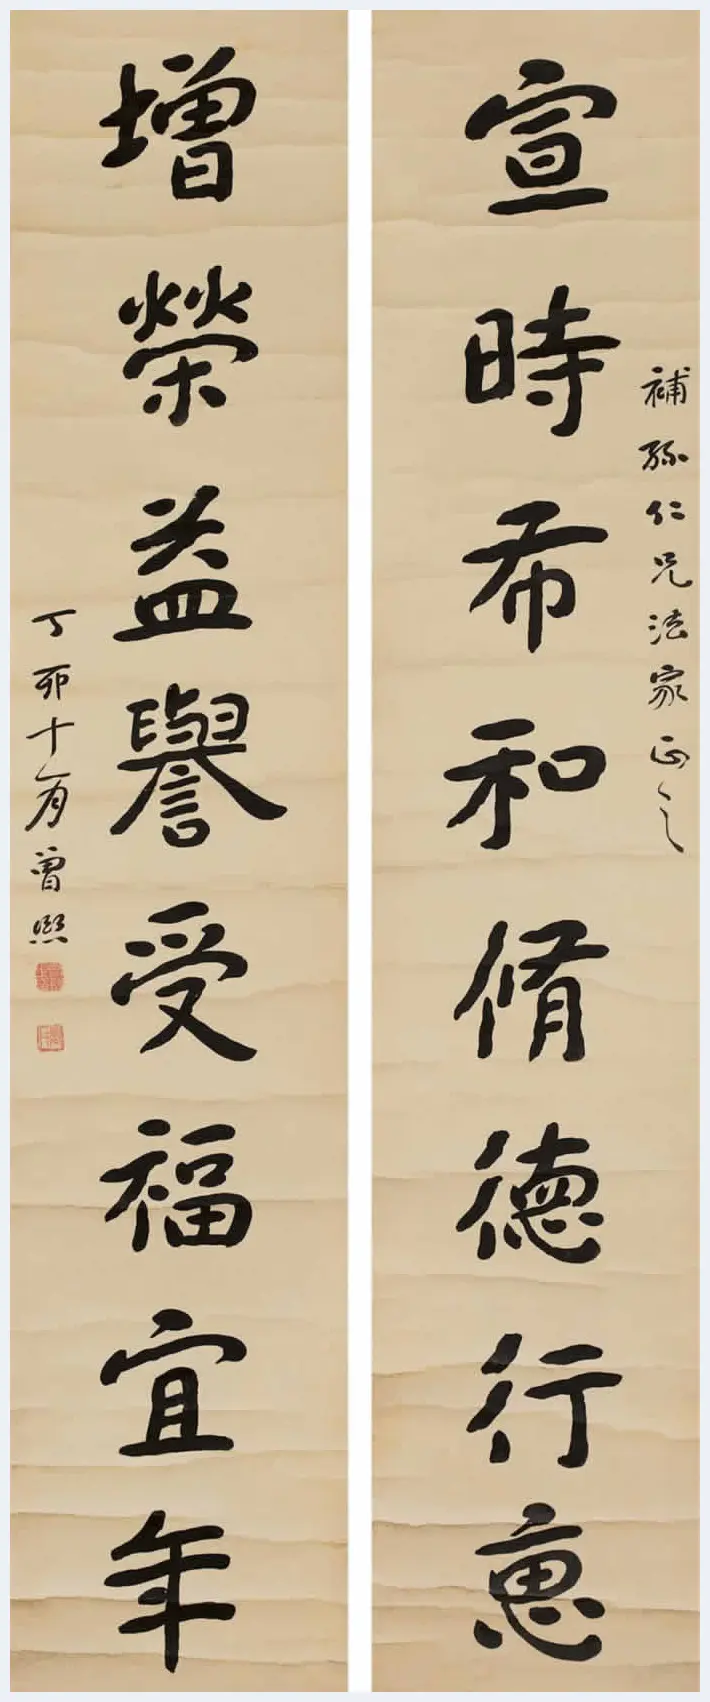 補孫仁兄法家正之
宣時布和脩德行惠
增榮益譽受福宜年
丁卯十一月曾熙